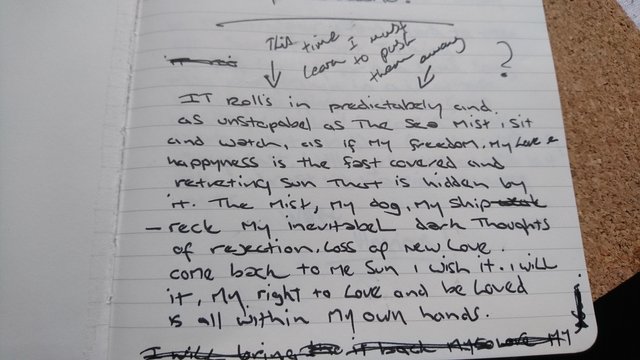 This time I must
learn to push
them away
?
IT Rolls in predictabely and
as unstopabel as The Sea Mist, i sit
and watch, as if My freedom, My Love &
happyness is the fast covered and
retreting Sun That is hidden by
it. The Mist, My dog, My ship
- reck My inevitabel dark Thoughts
of rejection, Loss of New Love.
come back to Me Sun i wish it. i will
it, My right to Love and be Loved
is all within My own hands.
I will bring it back My